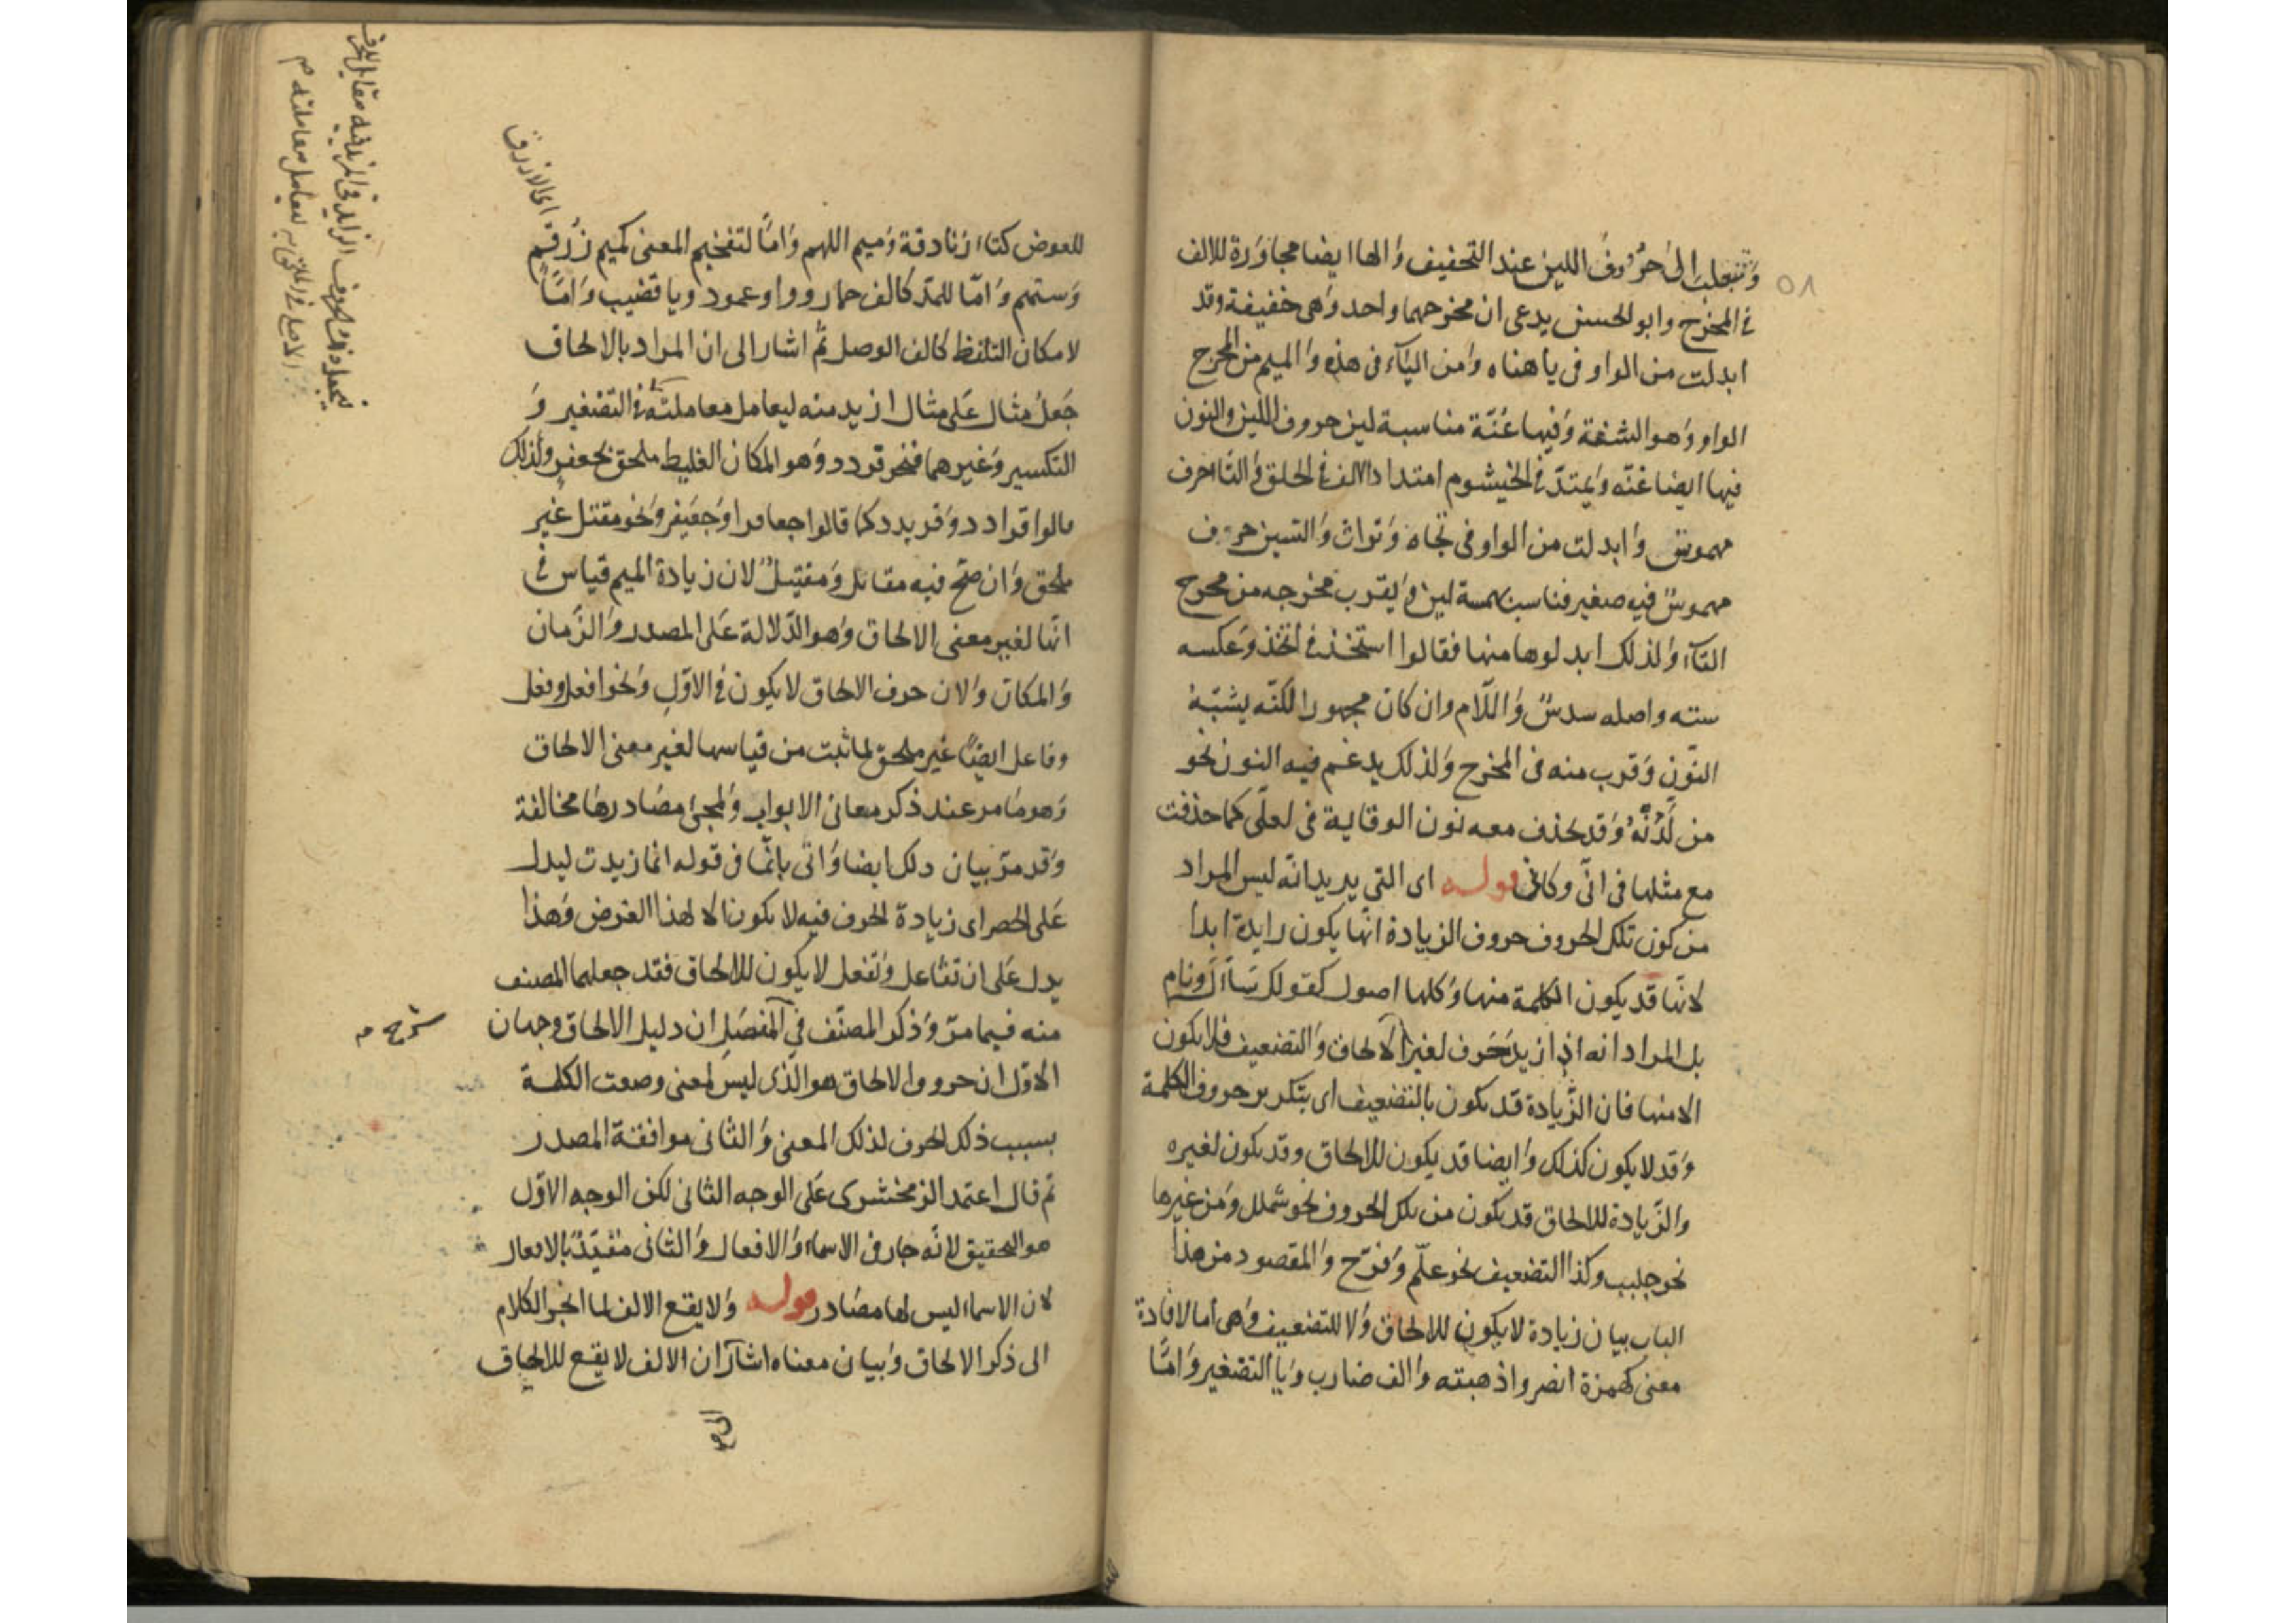 ٥٨
وتنقلب الى حروف اللين عند التخفيف والها ايضا مجاورة للالف
في المخرج وابو الحسن يدعى ان مخرجهما واحد وهى خفيفة وقد
ابدلت من الواو فى ياهناه ومن الياء فى هذه والميم من المخرج
الواو وهو الشفة وفيها غنة مناسبة لين حروف اللين والنون
فيها ايضا غنة ويمتد في الخيشوم امتداد الالف في الحلق والتا حرف
مهموس وابدلت من الواو فى تجاه وتراث والسين حرف
مهموس فيه صفير فناسب بهمسه لين ويقرب مخرجه من مخرج
التاء ولذلك ابدلوها منها فقالوا استخذ في اتخذ وعكسه
سته واصله سدس واللام وان كان مجهورا لكنه يشبه
النون وقرب منه فى المخرج ولذلك يدغم فيه النون نحو
من لدنه وقد يحذف معه نون الوقاية فى لعلى كما حذفت
مع مثلها فى انى وكانى قوله اى التى يريد انه ليس المراد
من كون تلك الحروف حروف الزيادة انها يكون زايدة ابدا
لانها قد يكون الكلمة منها وكلها اصول كقولك سأل ونام
بل المراد انه اذا زيد حرف لغير الالحاق والتضعيف فلا يكون
الا منها فان الزيادة قد يكون بالتضعيف اى بتكرير حروف الكلمة
وقد لا يكون كذلك وايضا قد يكون للالحاق وقد يكون لغيره
والزيادة للالحاق قد يكون من تلك الحروف نحو شملل ومن غيرها
نحو جلبب وكذا التضعيف نحو علم وفرح والمقصود من هذا
الباب بيان زيادة لا يكون للالحاق ولا للتضعيف وهى اما لافادة
معنى كهمزة انصر واذهبته والف ضارب ويا التصغير واما
للعوض كتاء زنادقة وميم اللهم واما لتفخيم المعنى كميم زرقم
وستهم واما للمد كالف حمار وواو عمود ويا قضيب واما
لامكان التلفظ كالف الوصل ثم اشار الى ان المراد بالالحاق
جعل مثال على مثال ازيد منه ليعامل معاملته في التصغير و
التكسير وغيرهما فنحو قردد وهو المكان الغليظ ملحق بجعفر ولذلك
قالوا قرادد وقريدد كما قالوا جعافر وجعيفر ونحو مقتل غير
ملحق وان صح فيه مقاتل ومقيتل لان زيادة الميم قياس في
انها لغير معنى الالحاق وهو الدلالة على المصدر والزمان
والمكان ولان حرف الالحاق لا يكون في الاول ونحو افعل وفعل
وفاعل ايضا غير ملحق لما ثبت من قياسها لغير معنى الالحاق
وهو ما مر عند ذكر معانى الابواب ولمجئ مصادرها مخالفة
وقد مر بيان ذلك ايضا واتى بانما فى قوله انما زيدت ليدل
على الحصر اى زيادة الحرف فيه لا يكون الا لهذا الغرض وهذا
يدل على ان تفاعل وتفعل لا يكون للالحاق فقد جعلهما المصنف
منه فيما مر وذكر المصنف في المفصل ان دليل الالحاق وجهان
الاول ان حروف الالحاق هو الذى ليس لمعنى وضعت الكلمة
بسبب ذلك الحرف لذلك المعنى والثانى موافقة المصدر
ثم قال اعتمد الزمخشرى على الوجه الثانى لكن الوجه الاول
هو التحقيق لانه جار فى الاسماء والافعال والثانى مقيد بالافعال
لان الاسماء ليس لها مصادر قوله ولا يقع الالف لما انجر الكلام
الى ذكر الالحاق وبيان معناه اشار ان الالف لا يقع للالحاق
اى الازرق
شرح م